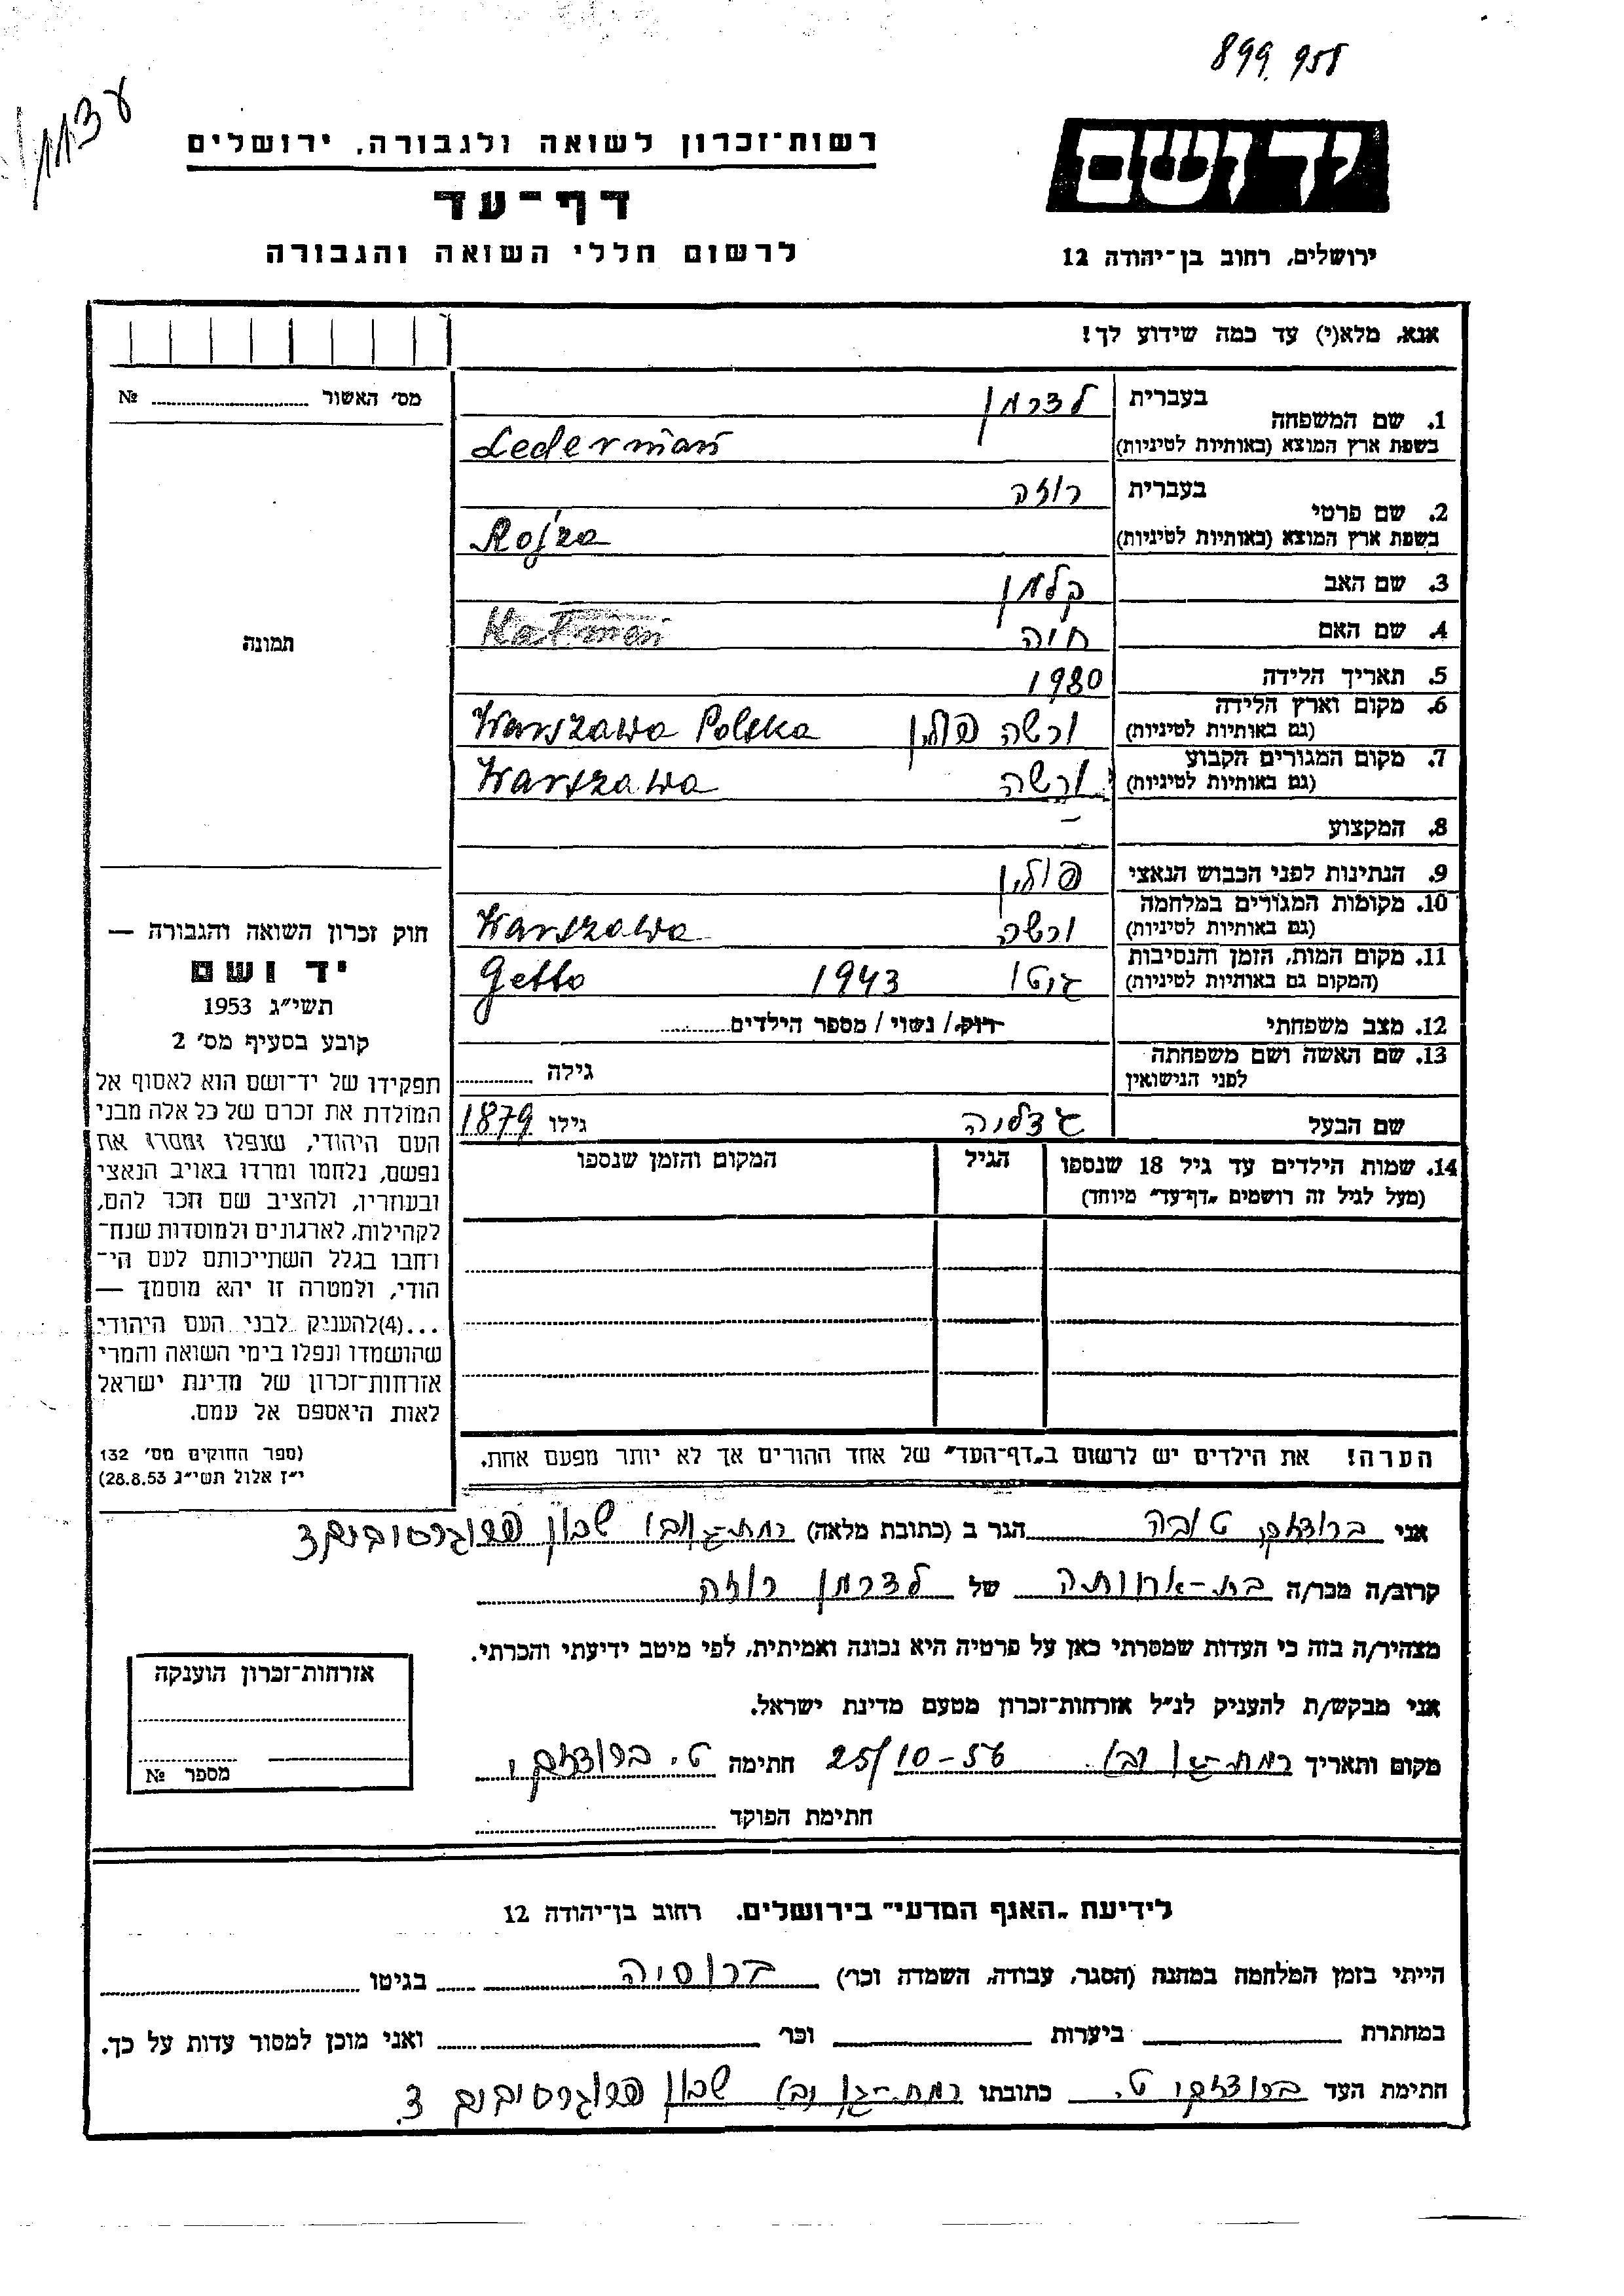 899.958
רשות־זכרון לשואה ולגבורה, ירושלים
דף־עד
לרשום חללי השואה והגבורה
יד ושם
ירושלים, רחוב בן־יהודה 12
אנא, מלא(י) עד כמה שידוע לך!
מס׳ האשור № 
1. שם המשפחה בעברית לדרמן
בשפת ארץ המוצא (באותיות לטיניות) Lederman
2. שם פרטי בעברית רוזה
בשפת ארץ המוצא (באותיות לטיניות) Rojza
3. שם האב קלמן
4. שם האם חיה Kalman
5. תאריך הלידה 1980
6. מקום וארץ הלידה (גם באותיות לטיניות) ורשה פולין Warszawa Polska
7. מקום המגורים הקבוע (גם באותיות לטיניות) ורשה Warszawa
8. המקצוע –
9. הנתינות לפני הכבוש הנאצי פולין
10. מקומות המגורים במלחמה (גם באותיות לטיניות) ורשה Warszawa
11. מקום המות, הזמן והנסיבות (המקום גם באותיות לטיניות) גיטו 1943 Getto
12. מצב משפחתי רוק/ נשוי/ מספר הילדים
13. שם האשה ושם משפחתה לפני הנישואין גילה
שם הבעל גדליה גילו 1879
14. שמות הילדים עד גיל 18 שנספו (מעל לגיל זה רושמים „דף־עד״ מיוחד) הגיל המקום והזמן שנספו
הערה! את הילדים יש לרשום ב„דף־העד״ של אחד ההורים אך לא יותר מפעם אחת.
תמונה
חוק זכרון השואה והגבורה —
יד ושם
תשי״ג 1953
קובע בסעיף מס׳ 2
תפקידו של יד־ושם הוא לאסוף אל
המולדת את זכרם של כל אלה מבני
העם היהודי, שנפלו ומסרו את
נפשם, נלחמו ומרדו באויב הנאצי
ובעוזריו, ולהציב שם וזכר להם,
לקהילות, לארגונים ולמוסדות שנח־
רחבו בגלל השתייכותם לעם הי־
הודי, ולמטרה זו יהא מוסמך —
...(4)להעניק לבני העם היהודי
שהושמדו ונפלו בימי השואה והמרי
אזרחות־זכרון של מדינת ישראל
לאות היאספם אל עמם.
(ספר החוקים מס׳ 132
י״ז אלול תשי״ג 28.8.53)
אני ברודצקי טובה הגר ב (כתובת מלאה) רמת-גן (ב) שכון פרוגרסיבים 3
קרוב/ה מכר/ה בת-אחותה של לדרמן רוזה
מצהיר/ה בזה כי העדות שמסרתי כאן על פרטיה היא נכונה ואמיתית, לפי מיטב ידיעתי והכרתי.
אני מבקש/ת להעניק לנ״ל אזרחות־זכרון מטעם מדינת ישראל.
מקום ותאריך רמת-גן (ב) 25/10-56 חתימה ט. ברודצקי
חתימת הפוקד
אזרחות־זכרון הוענקה
מספר №
לידיעת „האגף המדעי״ בירושלים. רחוב בן־יהודה 12
הייתי בזמן המלחמה במחנה (הסגר, עבודה, השמדה וכר׳) ברוסיה בגיטו
במחתרת ביערות וכר׳ ואני מוכן למסור עדות על כך.
חתימת העד ברודצקי ט. כתובתו רמת-גן (ב) שכון פרוגרסיבים 3